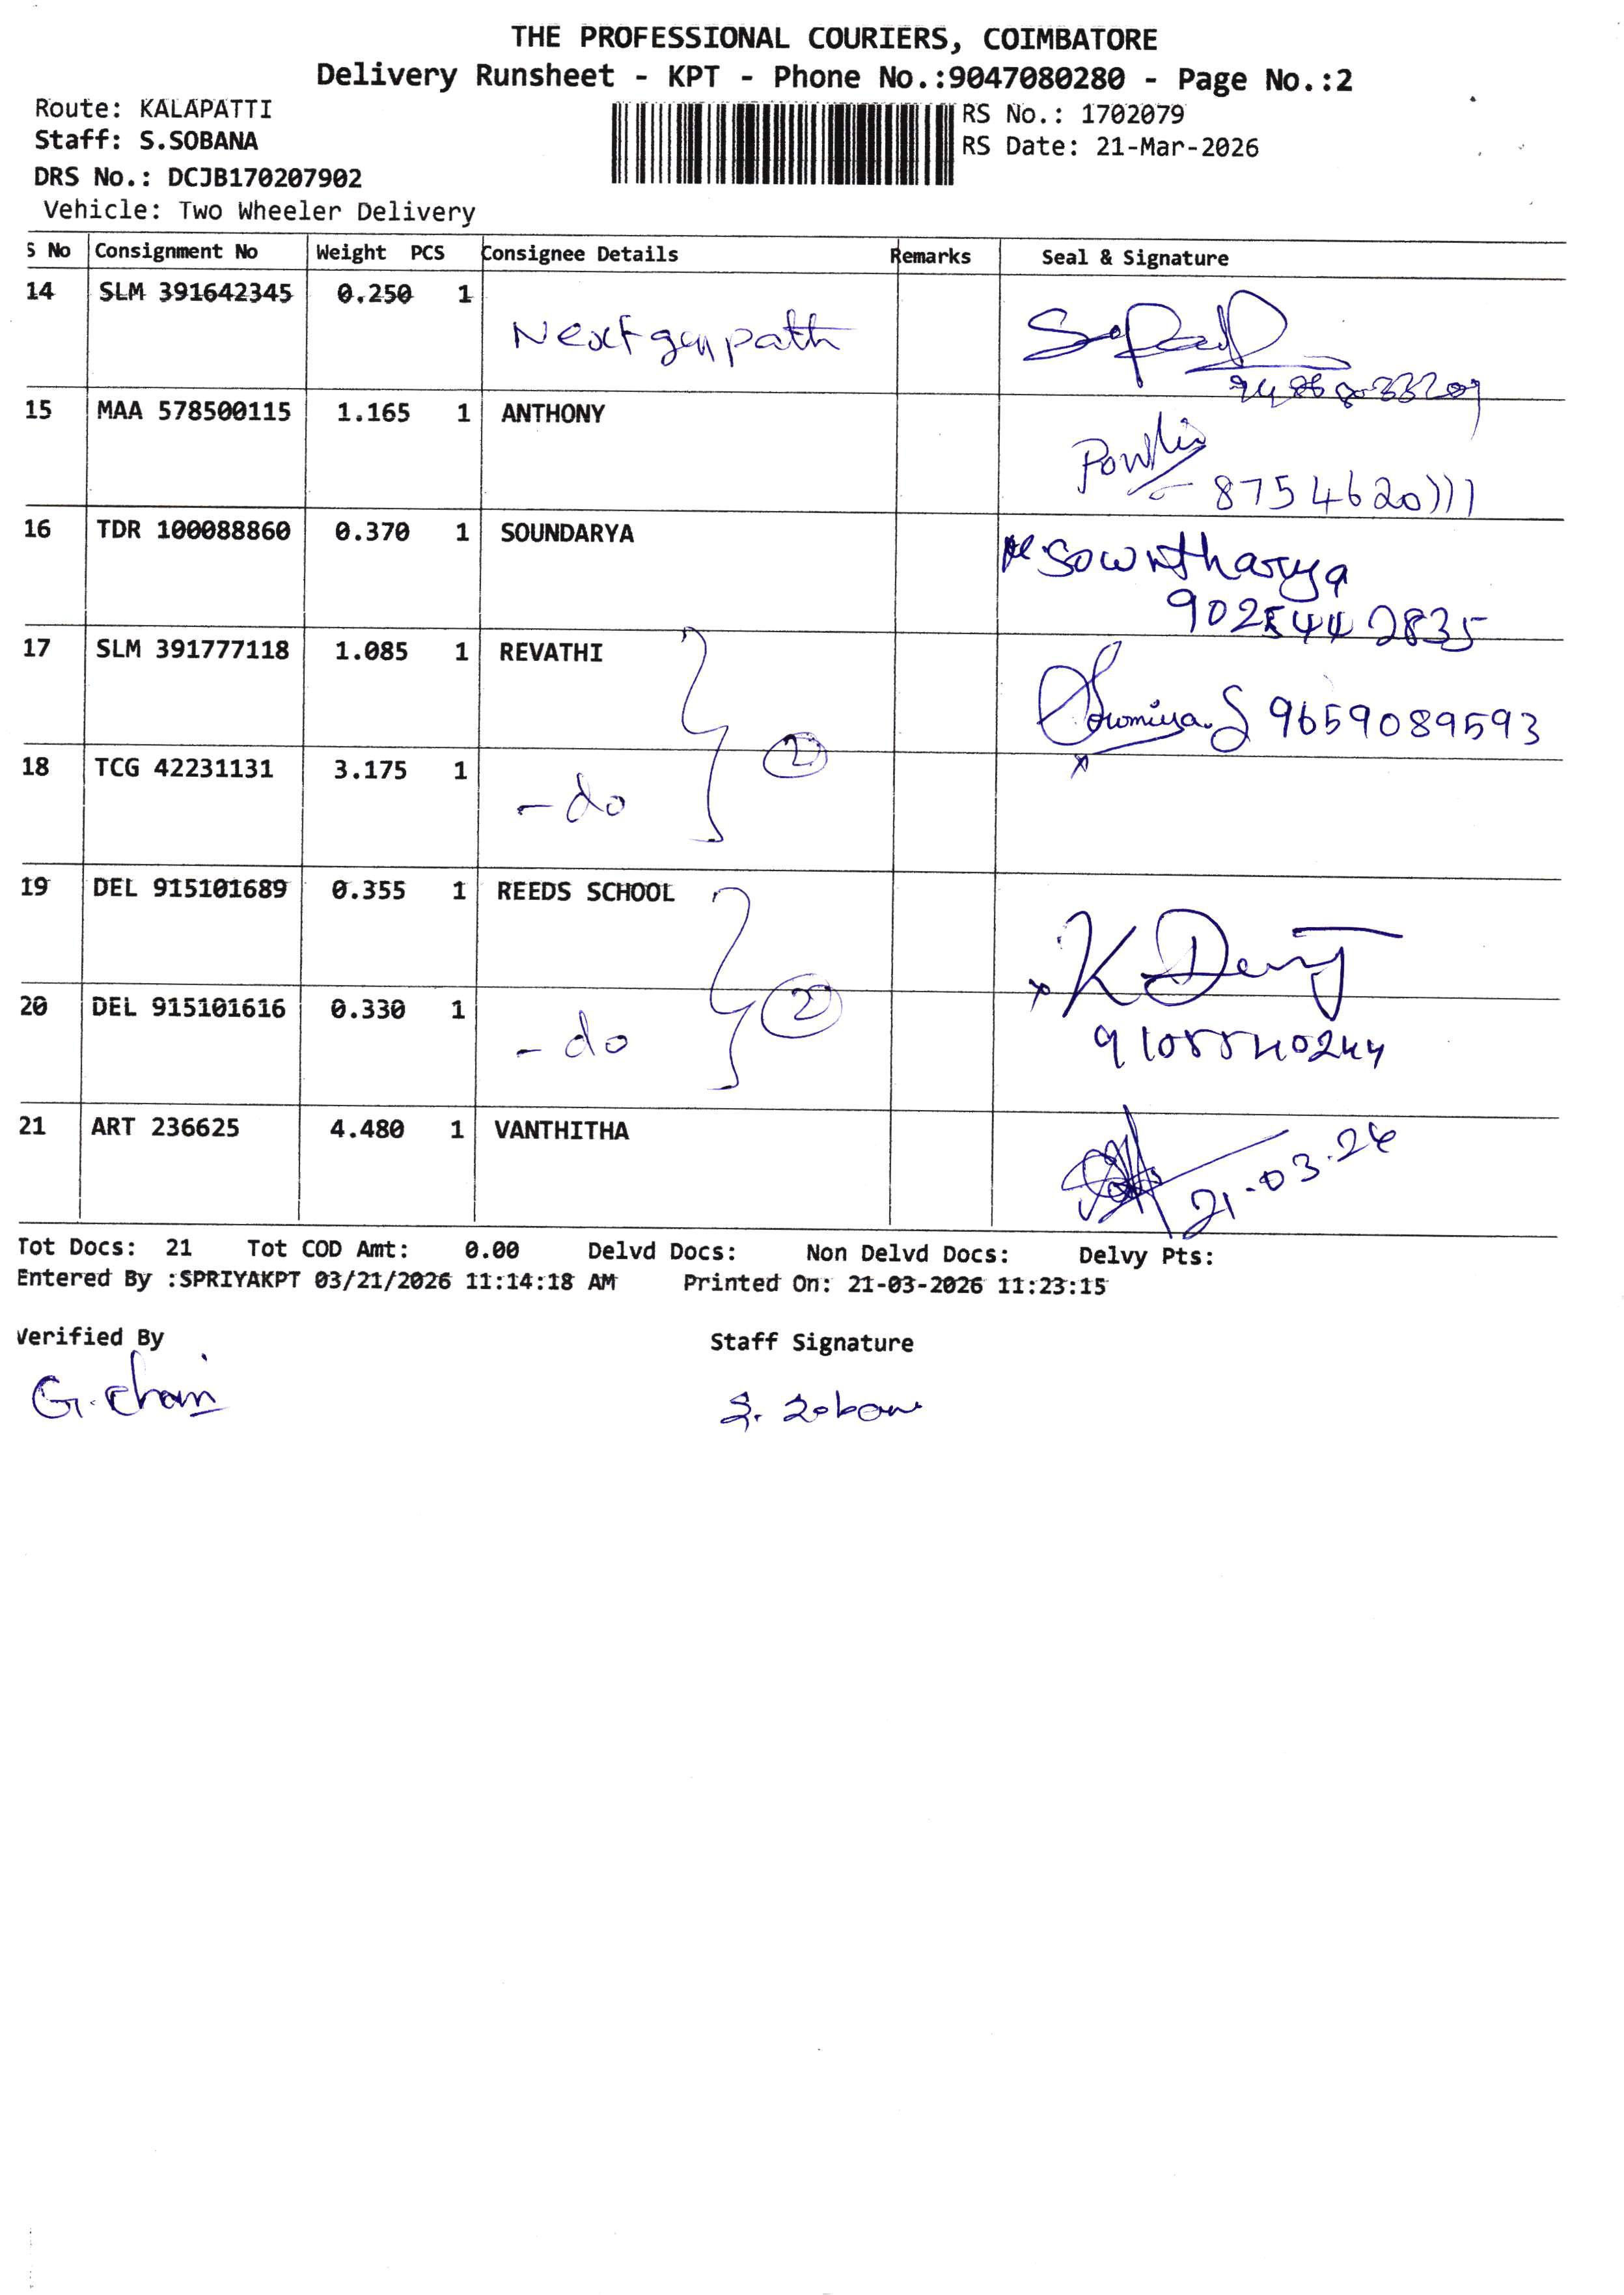 THE PROFESSIONAL COURIERS, COIMBATORE
Delivery Runsheet - KPT - Phone No.:9047080280 - Page No.:2
Route: KALAPATTI
RS No.: 1702079
Staff: S.SOBANA
RS Date: 21-Mar-2026
DRS No.: DCJB170207902
Vehicle: Two Wheeler Delivery
S No Consignment No Weight PCS Consignee Details Remarks Seal & Signature
14 SLM 391642345 0.250 1
Nextgenpath
15 MAA 578500115 1.165 1 ANTHONY
8754620111
16 TDR 100088860 0.370 1 SOUNDARYA
Sowntharya
9025442835
17 SLM 391777118 1.085 1 REVATHI
Sowmiya.S 9659089593
2
18 TCG 42231131 3.175 1
- do
19 DEL 915101689 0.355 1 REEDS SCHOOL
2
20 DEL 915101616 0.330 1
- do
21 ART 236625 4.480 1 VANTHITHA
21.03.26
Tot Docs: 21 Tot COD Amt: 0.00 Delvd Docs: Non Delvd Docs: Delvy Pts:
Entered By :SPRIYAKPT 03/21/2026 11:14:18 AM Printed On: 21-03-2026 11:23:15
Verified By Staff Signature